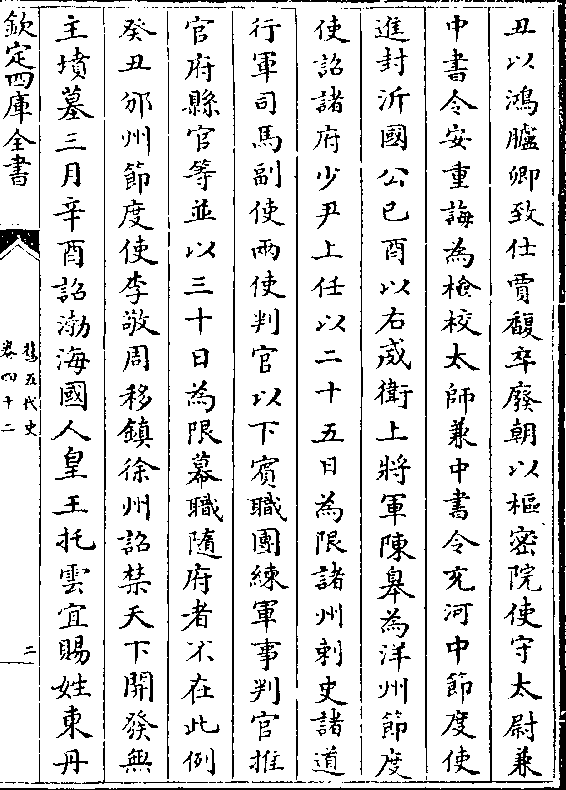 丑以鴻臚卿致仕賈馥卒廢朝以樞密院使守太尉兼
中書令安重誨為檢校太師兼中書令充河中節度使
進封沂國公已酉以右威衛上將軍陳臯為洋州節度
使詔諸府少尹上任以二十五日為限諸州刺史諸道
行軍司馬副使兩使判官以下賓職團練軍事判官推
官府縣官等並以三十日為限幕職隨府者不在此例
癸丑邠州節度使李敬周移鎮徐州詔禁天下開發無
主墳墓三月辛酉詔渤海國人皇王托雲宜賜姓東丹
欽定四庫全書
舊五代史
卷四十二
二